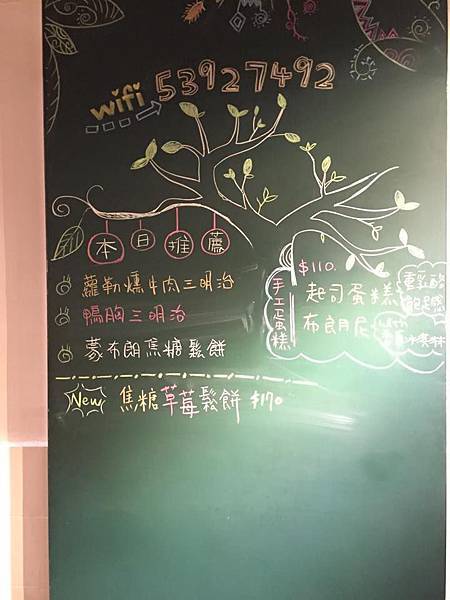 wifi 53927492
本日推薦
蘿勒燻牛肉三明治
鴨胸三明治
蒙布朗焦糖鬆餅
New 焦糖草莓鬆餅 $170
手工蛋糕
$110.
起司蛋糕
布朗尼
重乳酪